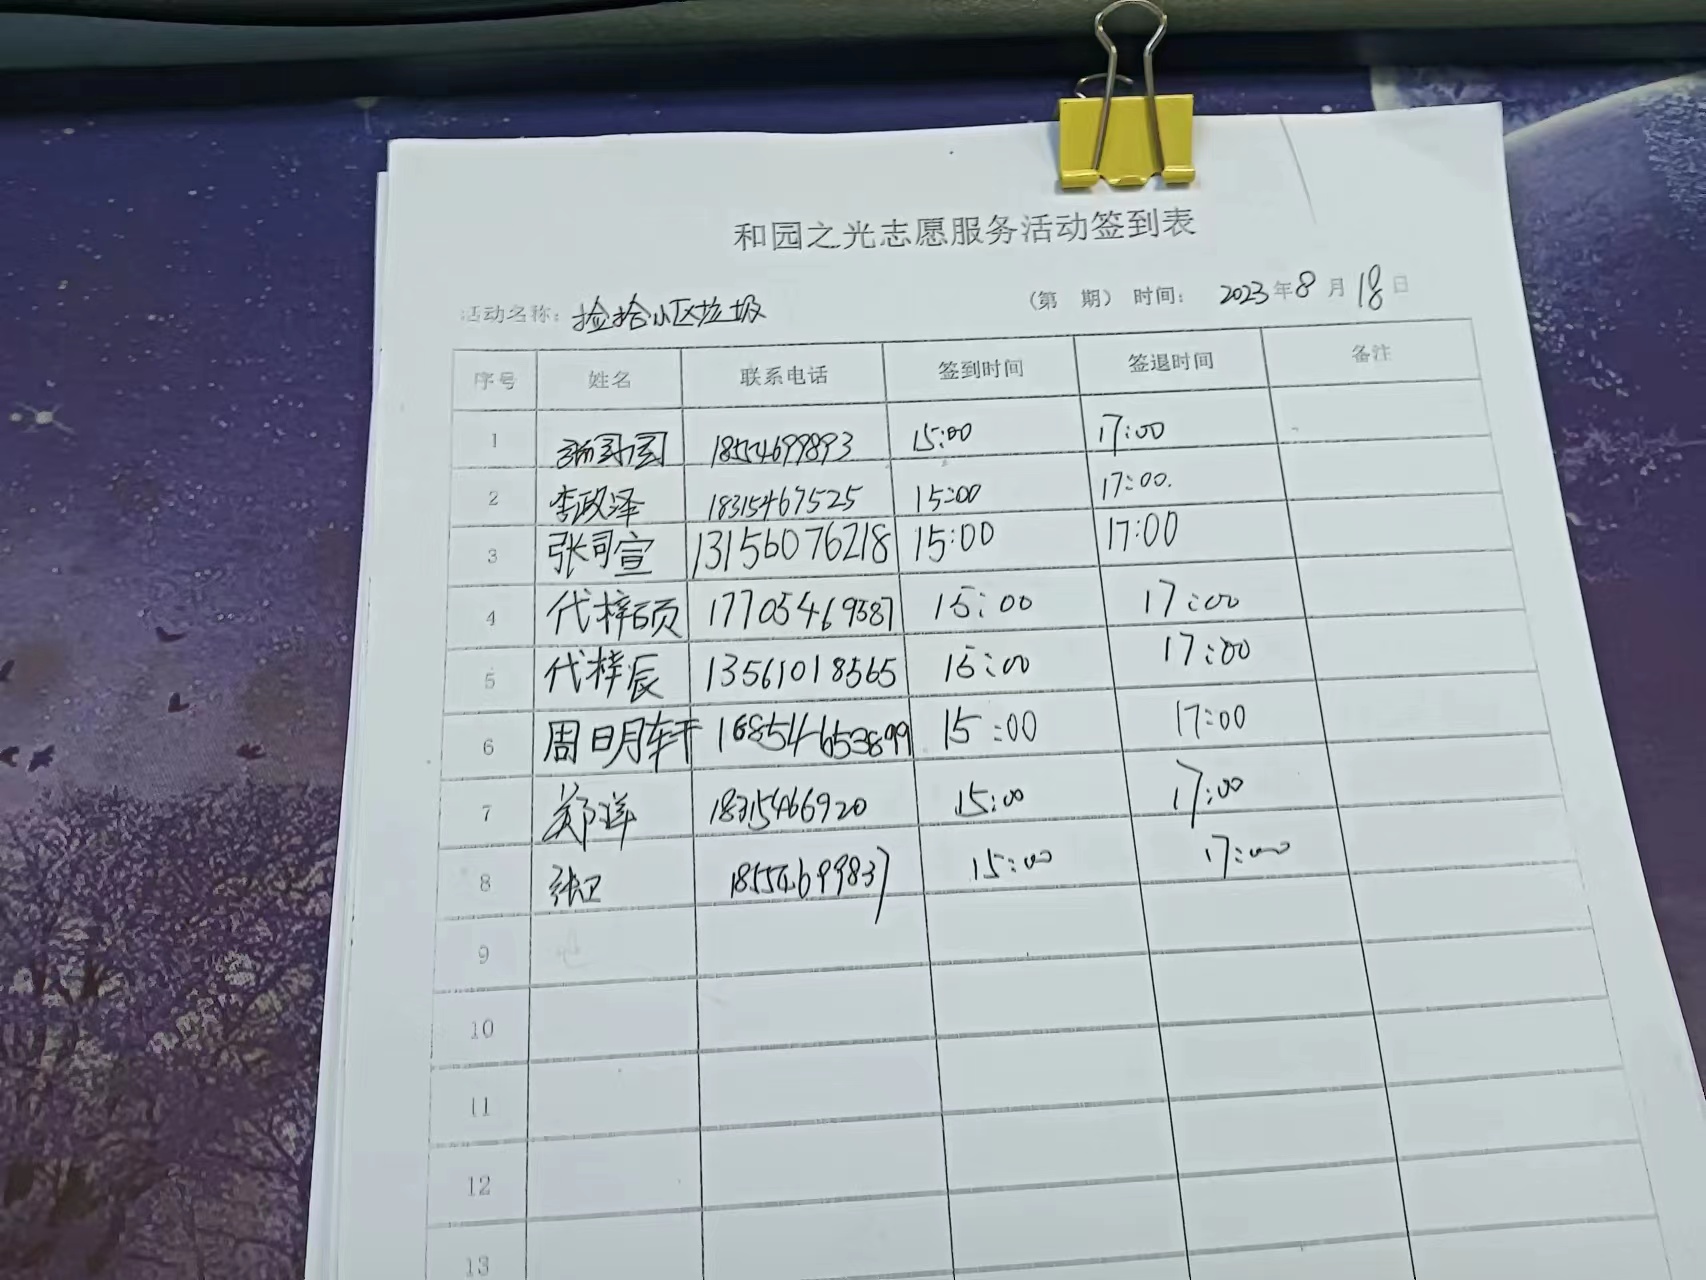 和园之光志愿服务活动签到表
活动名称：捡拾小区垃圾 （第 期） 时间： 2023年8月18日
序号 姓名 联系电话 签到时间 签退时间 备注
1 18554699893 15:00 17:00
2 李政泽 18315467525 15:00 17:00.
3 张可宣 13156076218 15:00 17:00
4 代梓硕 17705469587 15:00 17:00
5 代梓辰 13561018565 15:00 17:00
6 周明轩 15:00 17:00
7 郑洋 18315466920 15:00 17:00
8 张卫 18554699837 15:00 17:00
9
10
11
12
13